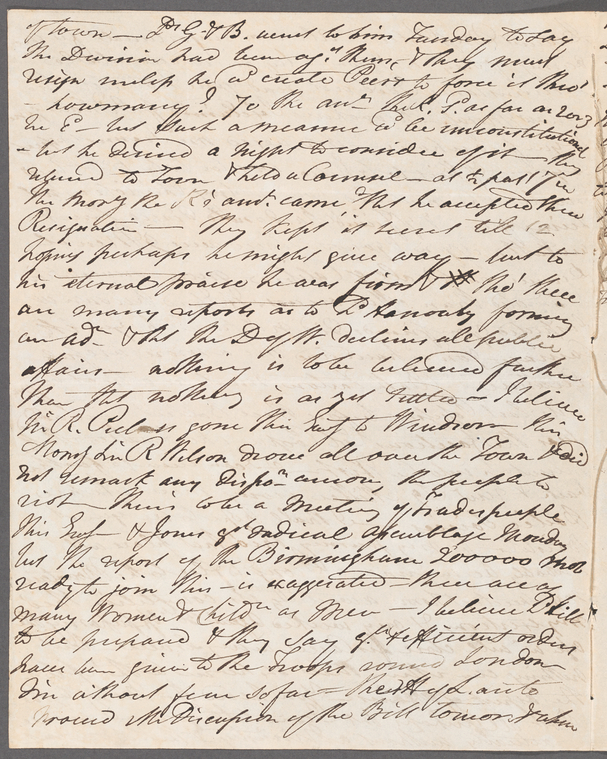 of town — Ds G. & B. went to him Tuesday to say
the Division had been agst them, & they must
resign unless he wd create Peers to force it thro'
— how many? To the ansr
he — but such a measure wd be unconstitutional
— but he desired a night to consider of it — they
returned to Town & held a Counsel — at ½ past 7 in
the morng the K's ansr came that he accepted their
Resignation — they kept it secret till 12
hoping perhaps he might give way — but to
his eternal praise he was firm & tho' there
are many reports as to Ld forming
an adn & that the D of W. declines all public
affairs — nothing is to be believed further
than that nothing is as yet settled — I believe
Sir R. Peel is gone this Eveg to Windsor — this
Morng Sir R Wilson drove all over the Town & did
not remark any disposn among the people to
riot — there is to be a meeting of Tradespeople
this Eveg — & Jones gt radical assemblage Monday
but the report of the Birmingham 200000 Mob
ready to join this — is exaggerated — there are as
many Women & Childn as Men — I believe
to be prepared & they say & efficient orders
have been given to the Troops round London
in without fear so far — the H of L. are to
the Discussion of the Bill tomorw & when